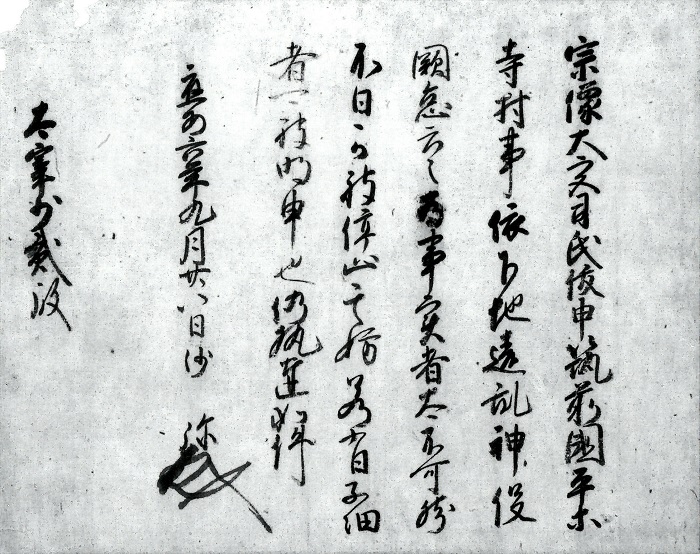 宗像大宮司氏俊申筑前国平等
寺村事依下地違乱神役
闕怠云々為事実者太不可然
不日可被停止其妨若有子細
者可被明申也仍執達如件
応永六年九月廿八日沙弥
太宰少弐殿